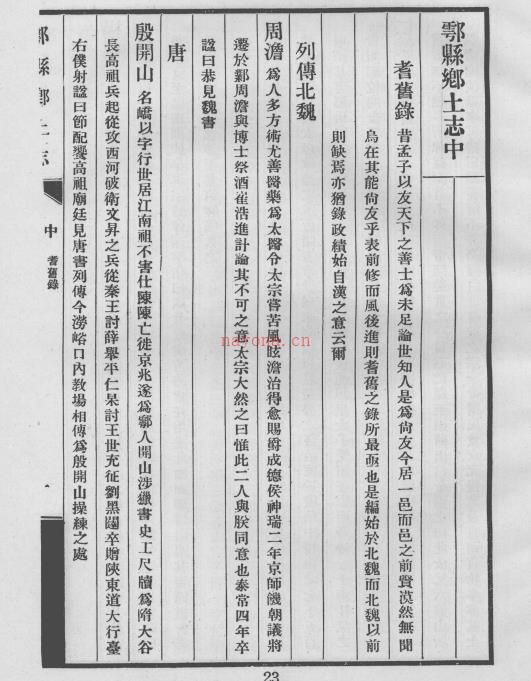 鄠縣鄉土志中
耆舊錄 昔孟子以友天下之善士爲未足論世知人是爲尙友今居一邑而邑之前賢漠然無聞
烏在其能尙友乎表前修而風後進則耆舊之錄所最亟也是編始於北魏而北魏以前
則缺焉亦猶錄政績始自漢之意云爾
列傳北魏
周澹 爲人多方術尤善醫藥爲太醫令太宗嘗苦風眩澹治得愈賜爵成德侯神瑞二年京師饑朝議將
遷於鄴周澹與博士祭酒崔浩進計論其不可之意太宗大然之曰惟此二人與朕同意也泰常四年卒
諡曰恭見魏書
唐
殷開山 名嶠以字行世居江南祖不害仕陳陳亡徙京兆遂爲鄠人開山涉獵書史工尺牘爲隋大谷
長高祖兵起從攻西河破衛文昇之兵從秦王討薛舉平仁杲討王世充征劉黑闥卒贈陝東道大行臺
右僕射諡曰節配饗高祖廟廷見唐書列傳今澇峪口內教場相傳爲殷開山操練之處
鄠縣鄉土志
中
耆舊錄
一
23
nayona.cn